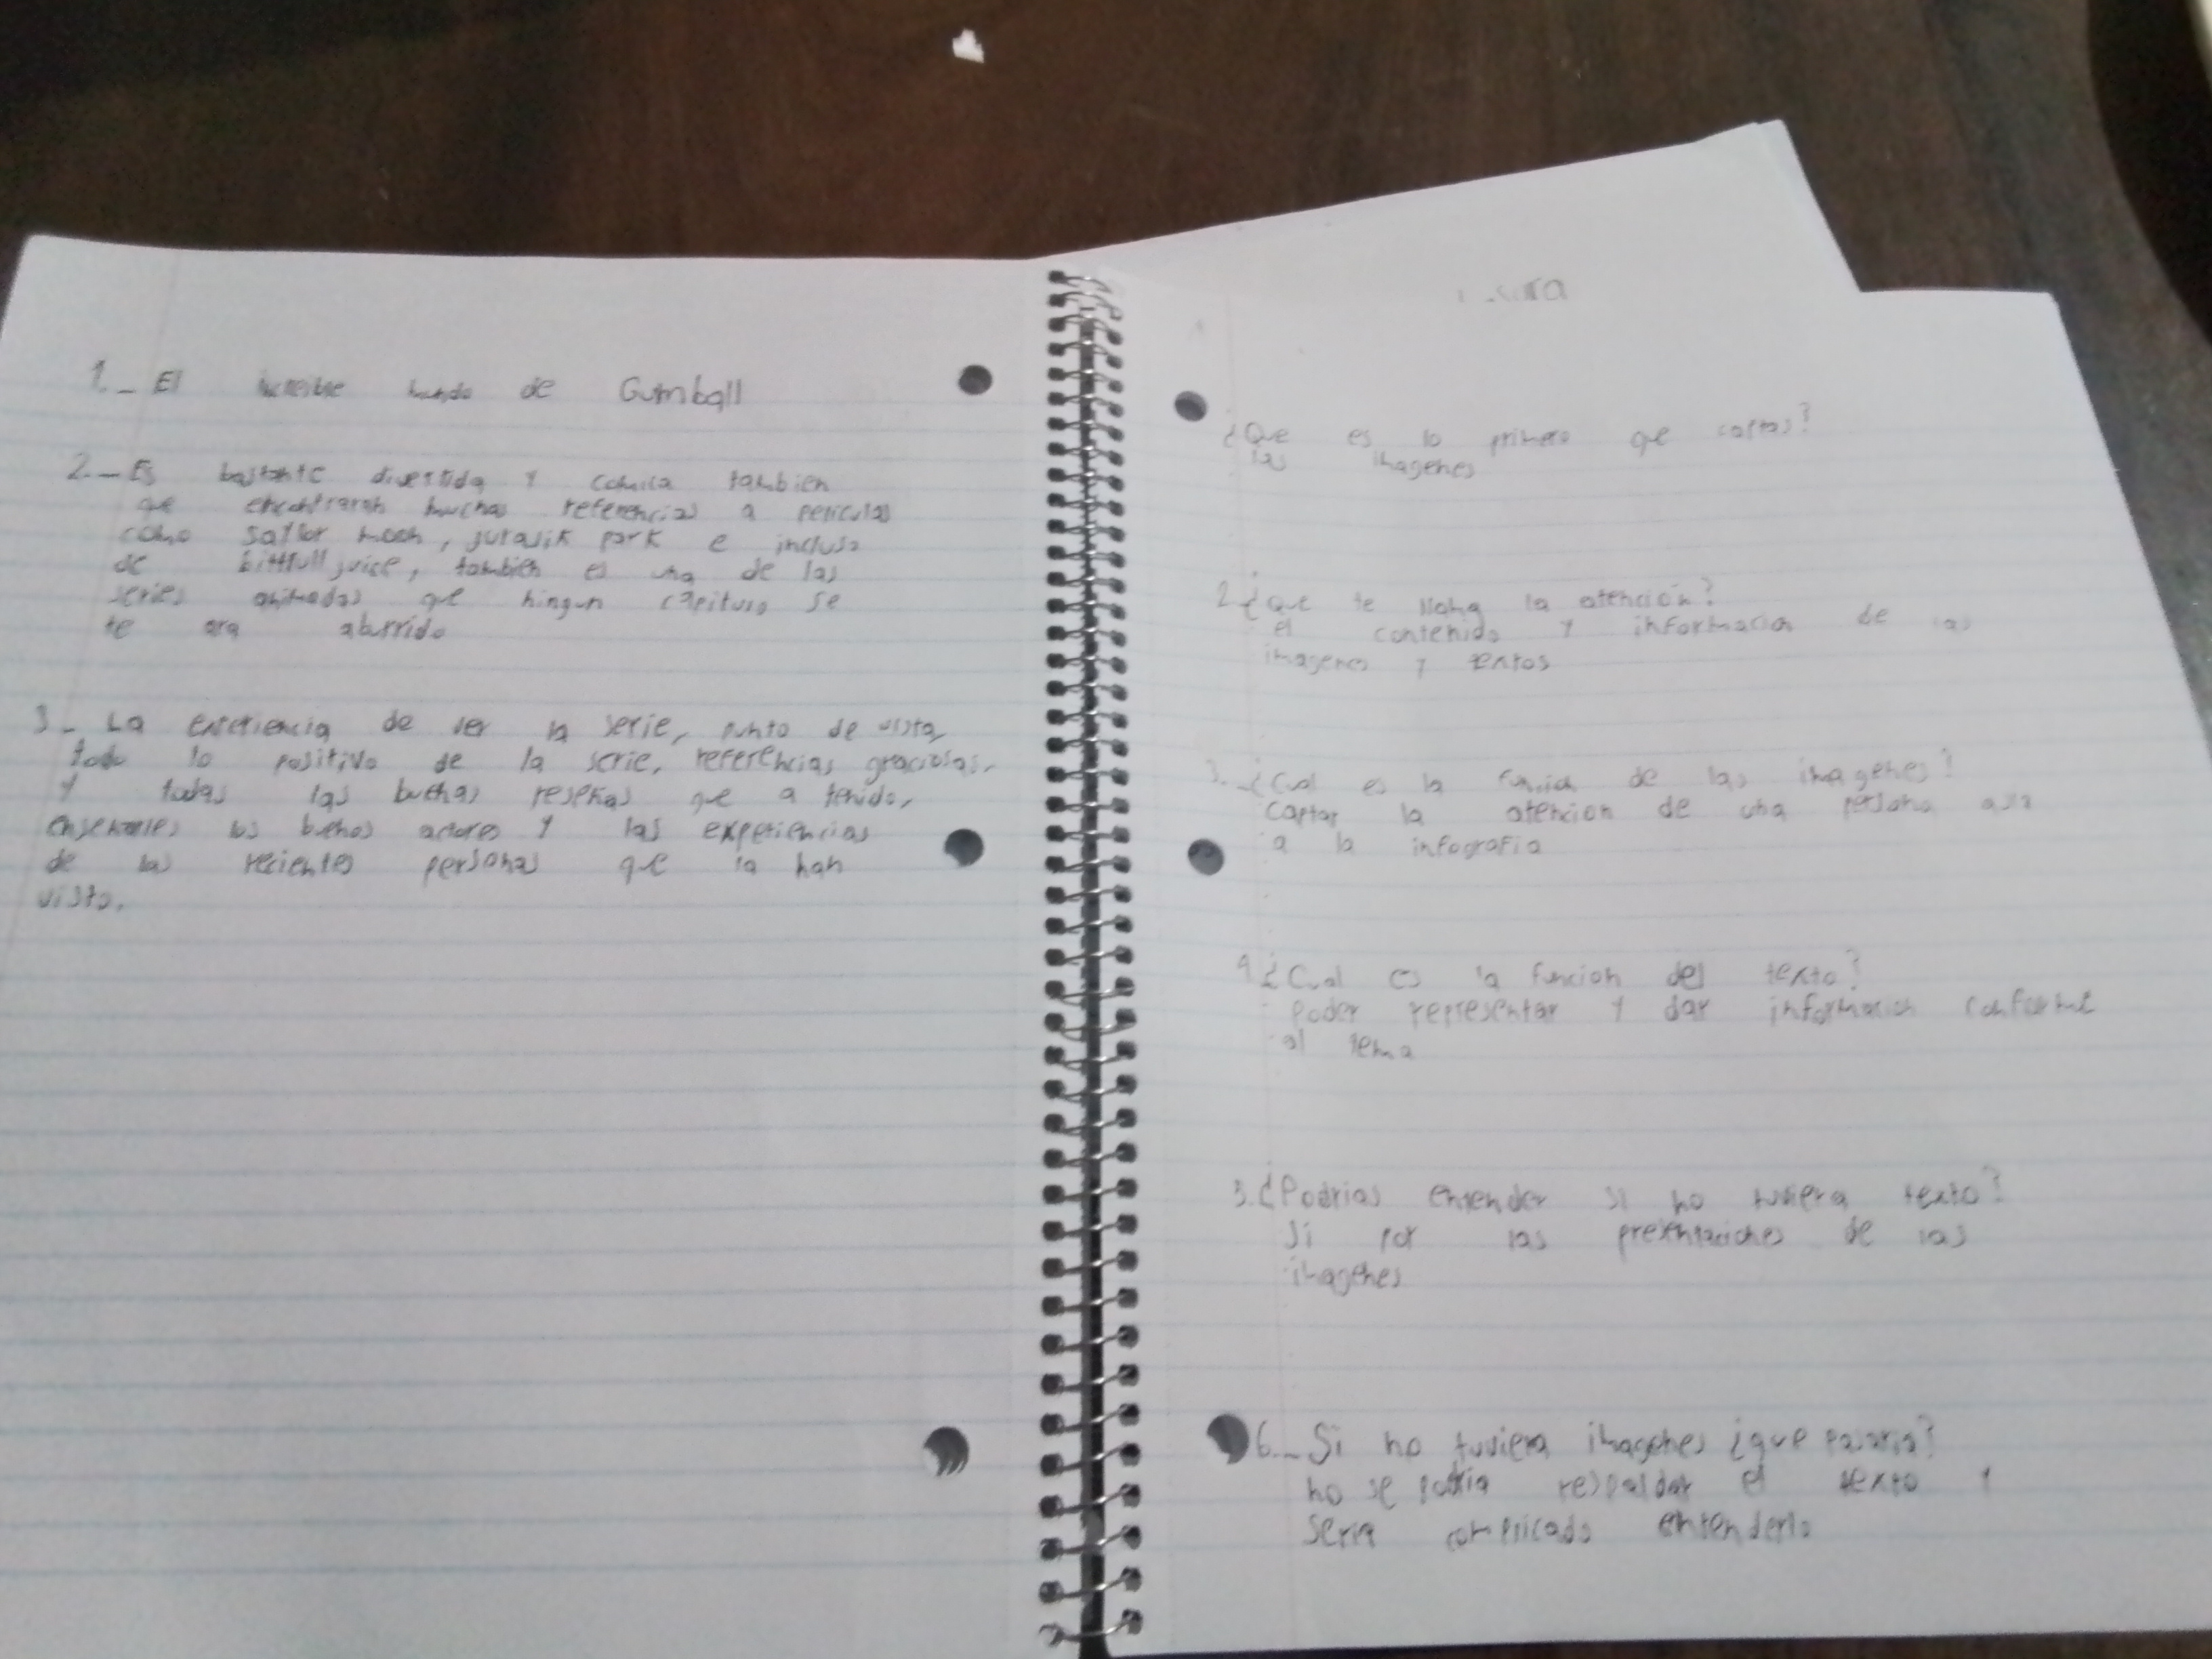 1._ El increible mundo de Gumball
2._ Es bastante divertida y comica tambien
que encontraran muchas referencias a peliculas
como sailor moon, jurasik park e incluso
de bittlull juice, tambien es una de las
series animadas que ningun capitulo se
te ara aburrido
3_ La experiencia de ver la serie, punto de vista,
todo lo positivo de la serie, referencias graciosas,
y todas las buenas reseñas que a tenido,
enseñarles los buenos actores y las experiencias
de las recientes personas que la han
visto.
¿Que es lo primero que captas?
las imagenes
2 ¿que te llama la atención?
el contenido y informacion de las
imagenes y textos
3._ ¿Cual es la funcion de las imagenes?
captar la atencion de una persona
a la infografia
4. ¿Cual es la funcion del texto?
poder representar y dar informacion conforme
al tema
5. ¿Podrias entender si no tuviera texto?
si por las presentaciones de las
imagenes
6._ Si no tuviera imagenes ¿que pasaria?
no se podria respaldar el texto y
seria complicado entenderlo